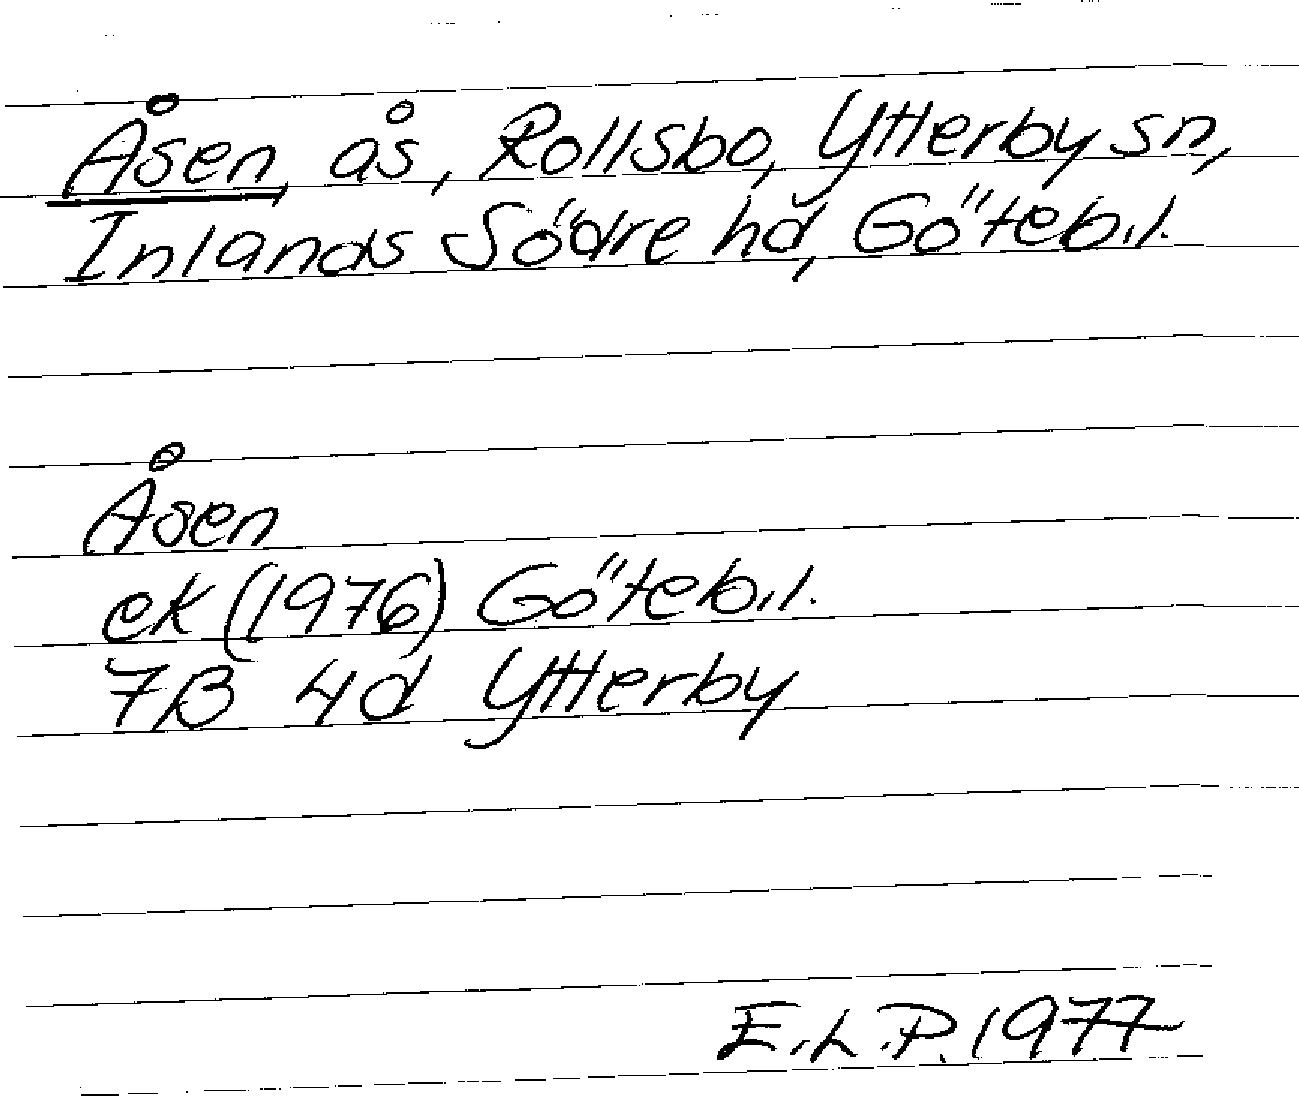 Åsen, ås, Rollsbo, Ytterby sn,
Inlands Södre hd, Göteb.l.
Åsen
ek (1976) Göteb.l.
7B 4d Ytterby
E.L.P. 1977